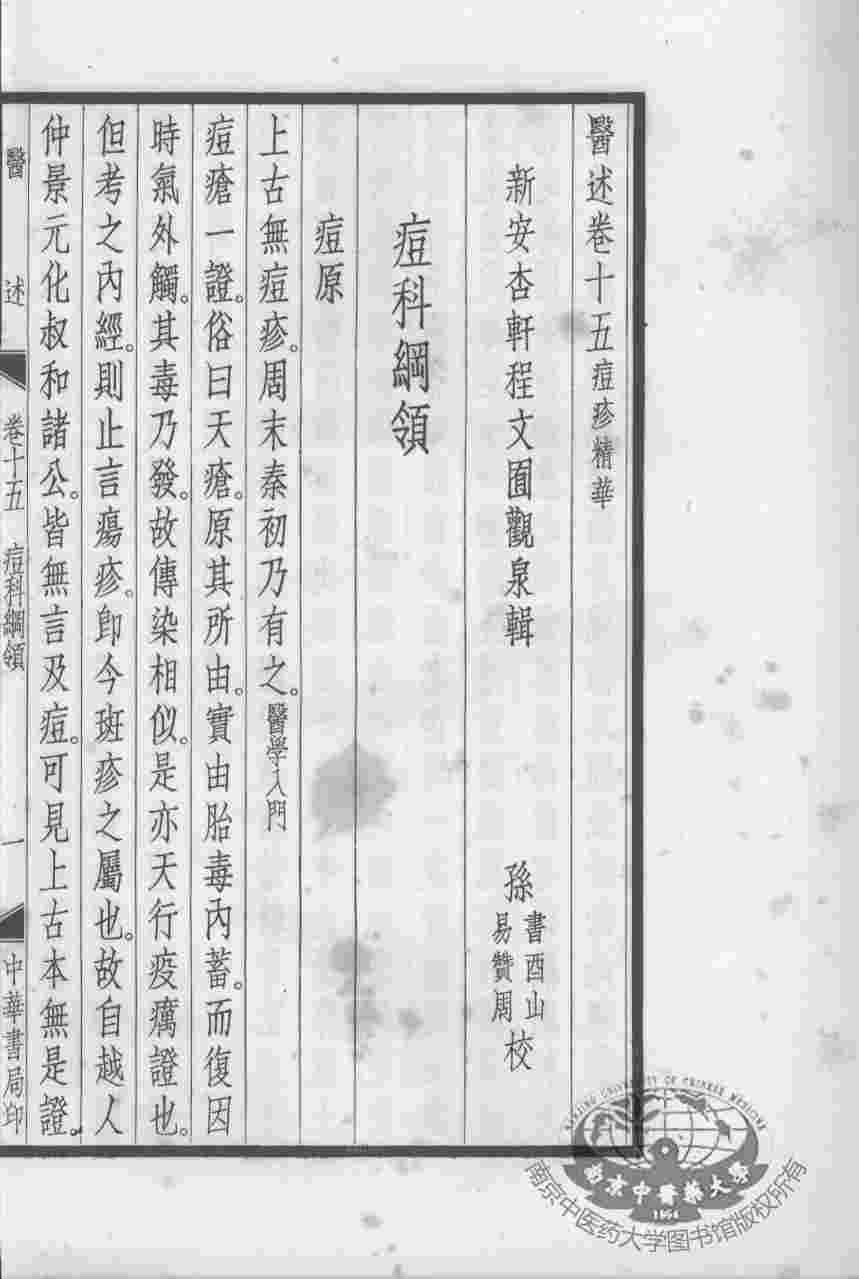 醫述卷十五痘疹精華
新安杏軒程文囿觀泉輯
孫
書酉山
易贊周
校
痘科綱領
痘原
上古無痘疹。周末秦初乃有之。醫學入門
痘瘡一證。俗曰天瘡。原其所由。實由胎毒內蓄。而復因
時氣外觸。其毒乃發。故傳染相似。是亦天行疫癘證也。
但考之內經。則止言瘍疹。卽今斑疹之屬也。故自越人
仲景元化叔和諸公。皆無言及痘。可見上古本無是證。
醫述
卷十五 痘科綱領
一
中華書局印
NANJING UNIVERSITY OF CHINESE MEDICINE
南京中醫藥大學
1954
南京中医药大学图书馆版权所有